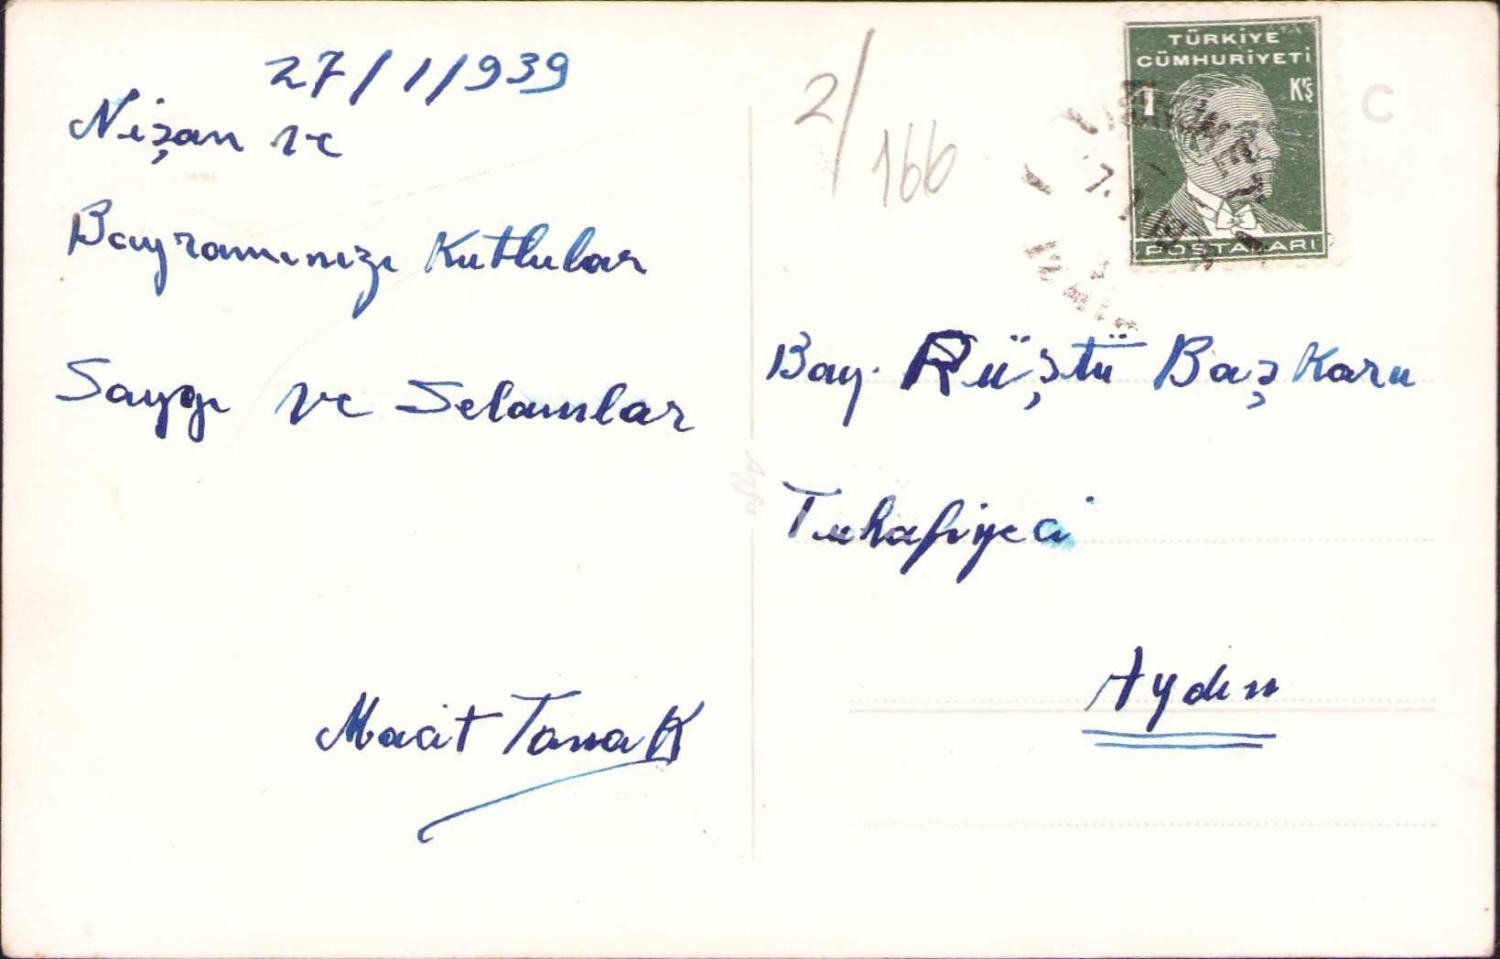 27/1/939
Nişan ve
Bayramınızı Kutlular
Saygı ve Selamlar
Macit Tanak
2/
166
TÜRKİYE
CÜMHURİYETİ
1 K'Ş
POSTALARI
C
Bay. Rüştü Başkaru
Tuhafiyeci
Aydın